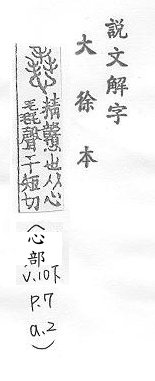 説文解字
大徐本
精戇也从心
毳聲千短切
(心部
v.10下
p.7
a.2)